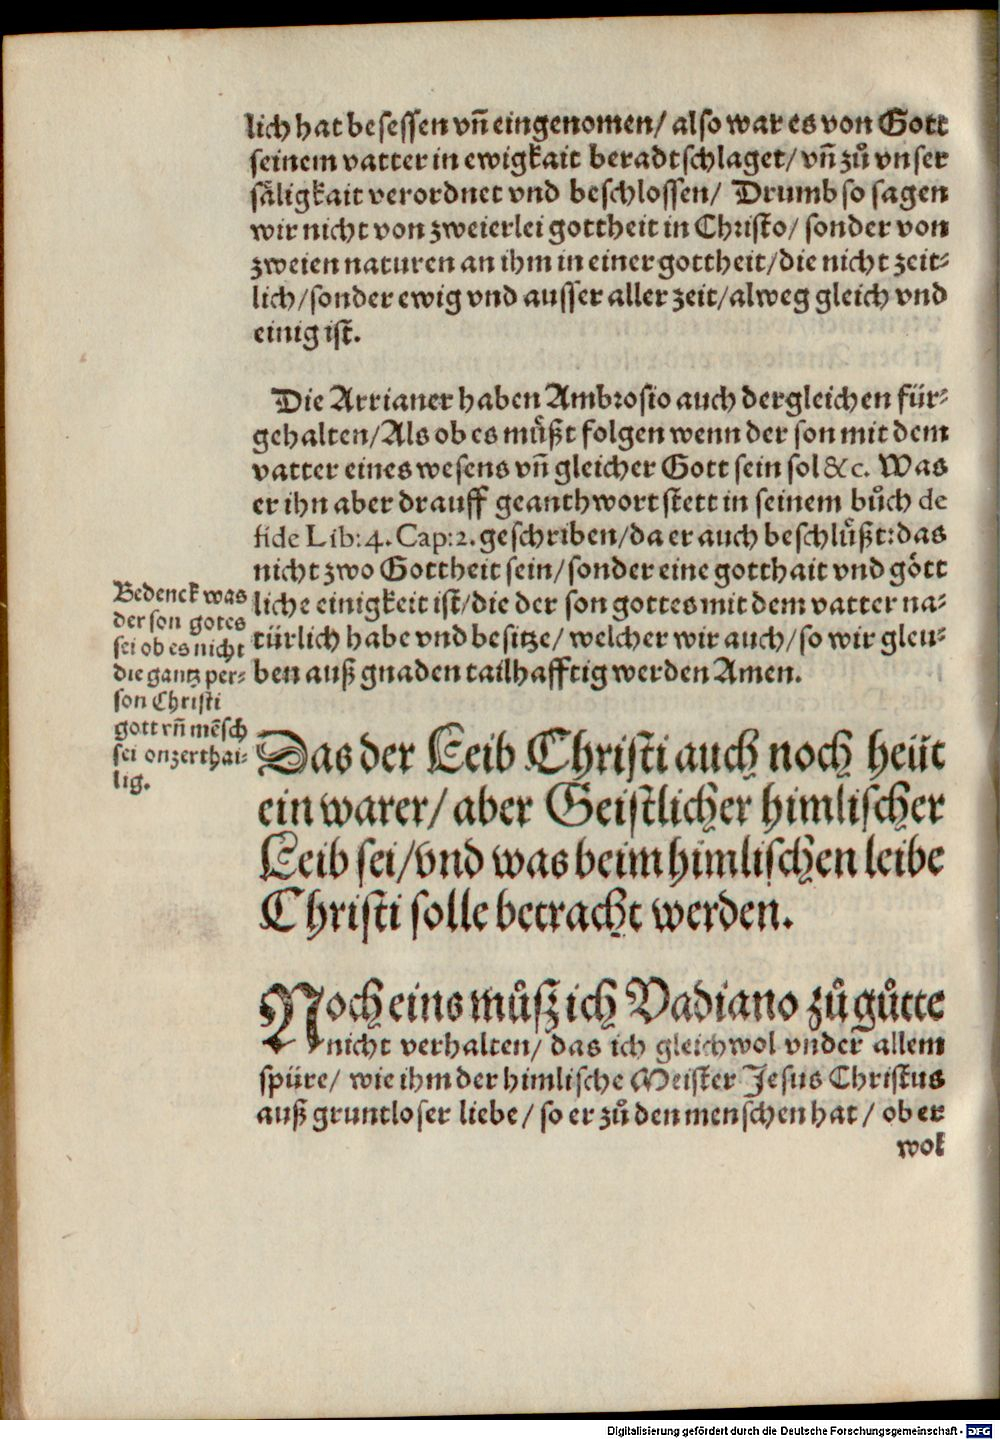 lich hat besessen vñ eingenomen/ also war es von Gott
seinem vatter in ewigkait beradtschlaget/ vñ zů vnser
såligkait verordnet vnd beschlossen/ Drumb so sagen
wir nicht von zweierlei gottheit in Christo/ sonder von
zweien naturen an ihm in einer gottheit/ die nicht zeit-
lich/ sonder ewig vnd ausser aller zeit/ alweg gleich vnd
einig ist.
Die Arrianer haben Ambrosio auch dergleichen für-
gehalten/ Als ob es müßt folgen wenn der son mit dem
vatter eines wesens vñ gleicher Gott sein sol &c. Was
er ihn aber drauff geanthwort stett in seinem bůch de
fide Lib: 4. Cap: 2. geschriben/ da er auch beschlüßt: das
nicht zwo Gottheit sein/ sonder eine gotthait vnd gött
liche einigkeit ist/ die der son gottes mit dem vatter na-
türlich habe vnd besitze/ welcher wir auch/ so wir gleu-
ben auß gnaden tailhafftig werden Amen.
Bedenck was
der son gotes
sei ob es nicht
die gantz per-
son Christi
gott vñ mẽsch
sei onzerthai-
lig.
Das der Leib Christi auch noch heüt
ein warer/ aber Geistlicher himlischer
Leib sei/ vnd was beim himlischen leibe
Christi solle betracht werden.
Noch eins můß ich Vadiano zů gůtte
nicht verhalten/ das ich gleichwol vnder allem
spüre/ wie ihm der himlische Meister Jesus Christus
auß gruntloser liebe/ so er zů den menschen hat/ ob er
wol
Digitalisierung gefördert durch die Deutsche Forschungsgemeinschaft - DFG